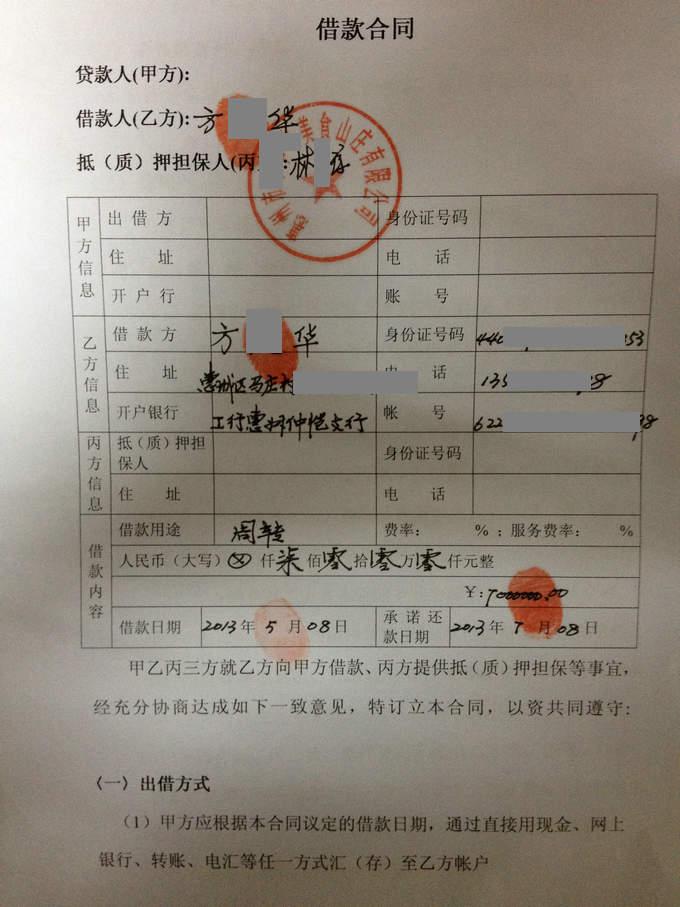 借款合同
贷款人(甲方):
借款人(乙方): 方 华
抵（质）押担保人(丙 : 林
美食山庄有限公司
甲方信息
出 借 方 身份证号码
住 址 电 话
开 户 行 账 号
乙方信息
借 款 方 方 华 身份证号码 440 53
住 址 惠城区马庄村 电 话 135 8
开户银行 工行惠州仲恺支行 帐 号 622 98
丙方信息
抵（质）押担保人 身份证号码
住 址 电 话
借款内容
借款用途 周转 费率： %；服务费率： %
人民币（大写）⊗仟柒佰零拾零万零仟元整
¥: 7000000.00
借款日期 2013年5月08日 承诺还款日期 2013年7月08日
甲乙丙三方就乙方向甲方借款、丙方提供抵（质）押担保等事宜，
经充分协商达成如下一致意见，特订立本合同，以资共同遵守:
〈一〉出借方式
（1）甲方应根据本合同议定的借款日期，通过直接用现金、网上
银行、转账、电汇等任一方式汇（存）至乙方帐户